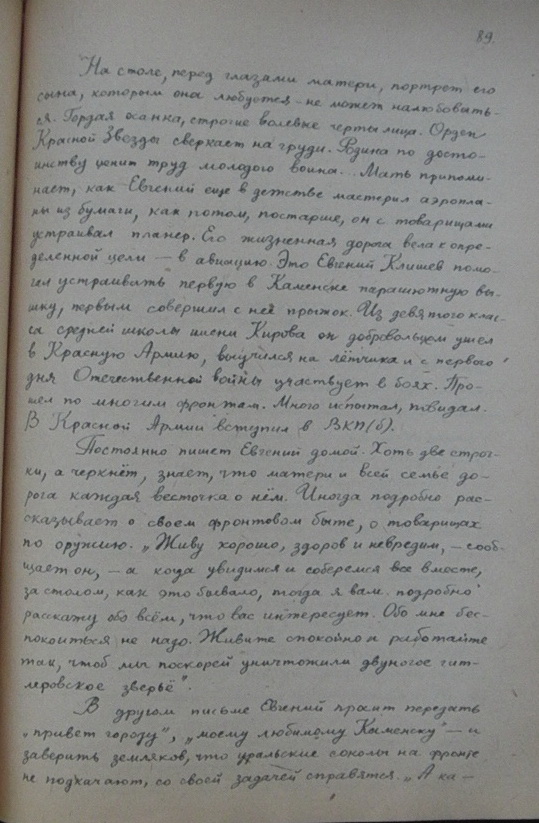 89.
На столе, перед глазами матери, портрет его
сына, которым она любуется - не может налюбовать-
ся. Гордая осанка, строгие волевые черты лица. Орден
Красной Звезды сверкает на груди. Родина по досто-
инству ценит труд молодого воина... Мать припоми-
нает, как Евгений еще в детстве мастерил аэропла-
ны из бумаги, как потом, постарше, он с товарищами
устраивал планер. Его жизненная дорога вела к опре-
деленной цели — в авиацию. Это Евгений Клишев помо-
гал устраивать первую в Каменске парашютную вы-
шку, первым совершил с неё прыжок. Из девятого клас-
са средней школы имени Кирова он добровольцем ушел
в Красную Армию, выучился на лётчика и с первого
дня Отечественной войны участвует в боях. Про-
шел по многим фронтам. Много испытал, повидал.
В Красной Армии вступил в ВКП(б).
Постоянно пишет Евгений домой. Хоть две строч-
ки, а черкнёт, знает, что матери и всей семье до-
рога каждая весточка о нём. Иногда подробно рас-
сказывает о своем фронтовом быте, о товарищах
по оружию. „Живу хорошо, здоров и невредим, — сооб-
щает он, — а когда увидимся и соберемся все вместе,
за столом, как это бывало, тогда я вам подробно
расскажу обо всём, что вас интересует. Обо мне бес-
покоиться не надо. Живите спокойно и работайте
так, чтоб мы поскорей уничтожили двуногое гит-
леровское зверьё".
В другом письме Евгений просит передать
„привет городу", „моему любимому Каменску" — и
заверить земляков, что уральские соколы на фронте
не подкачают, со своей задачей справятся. „А ка-